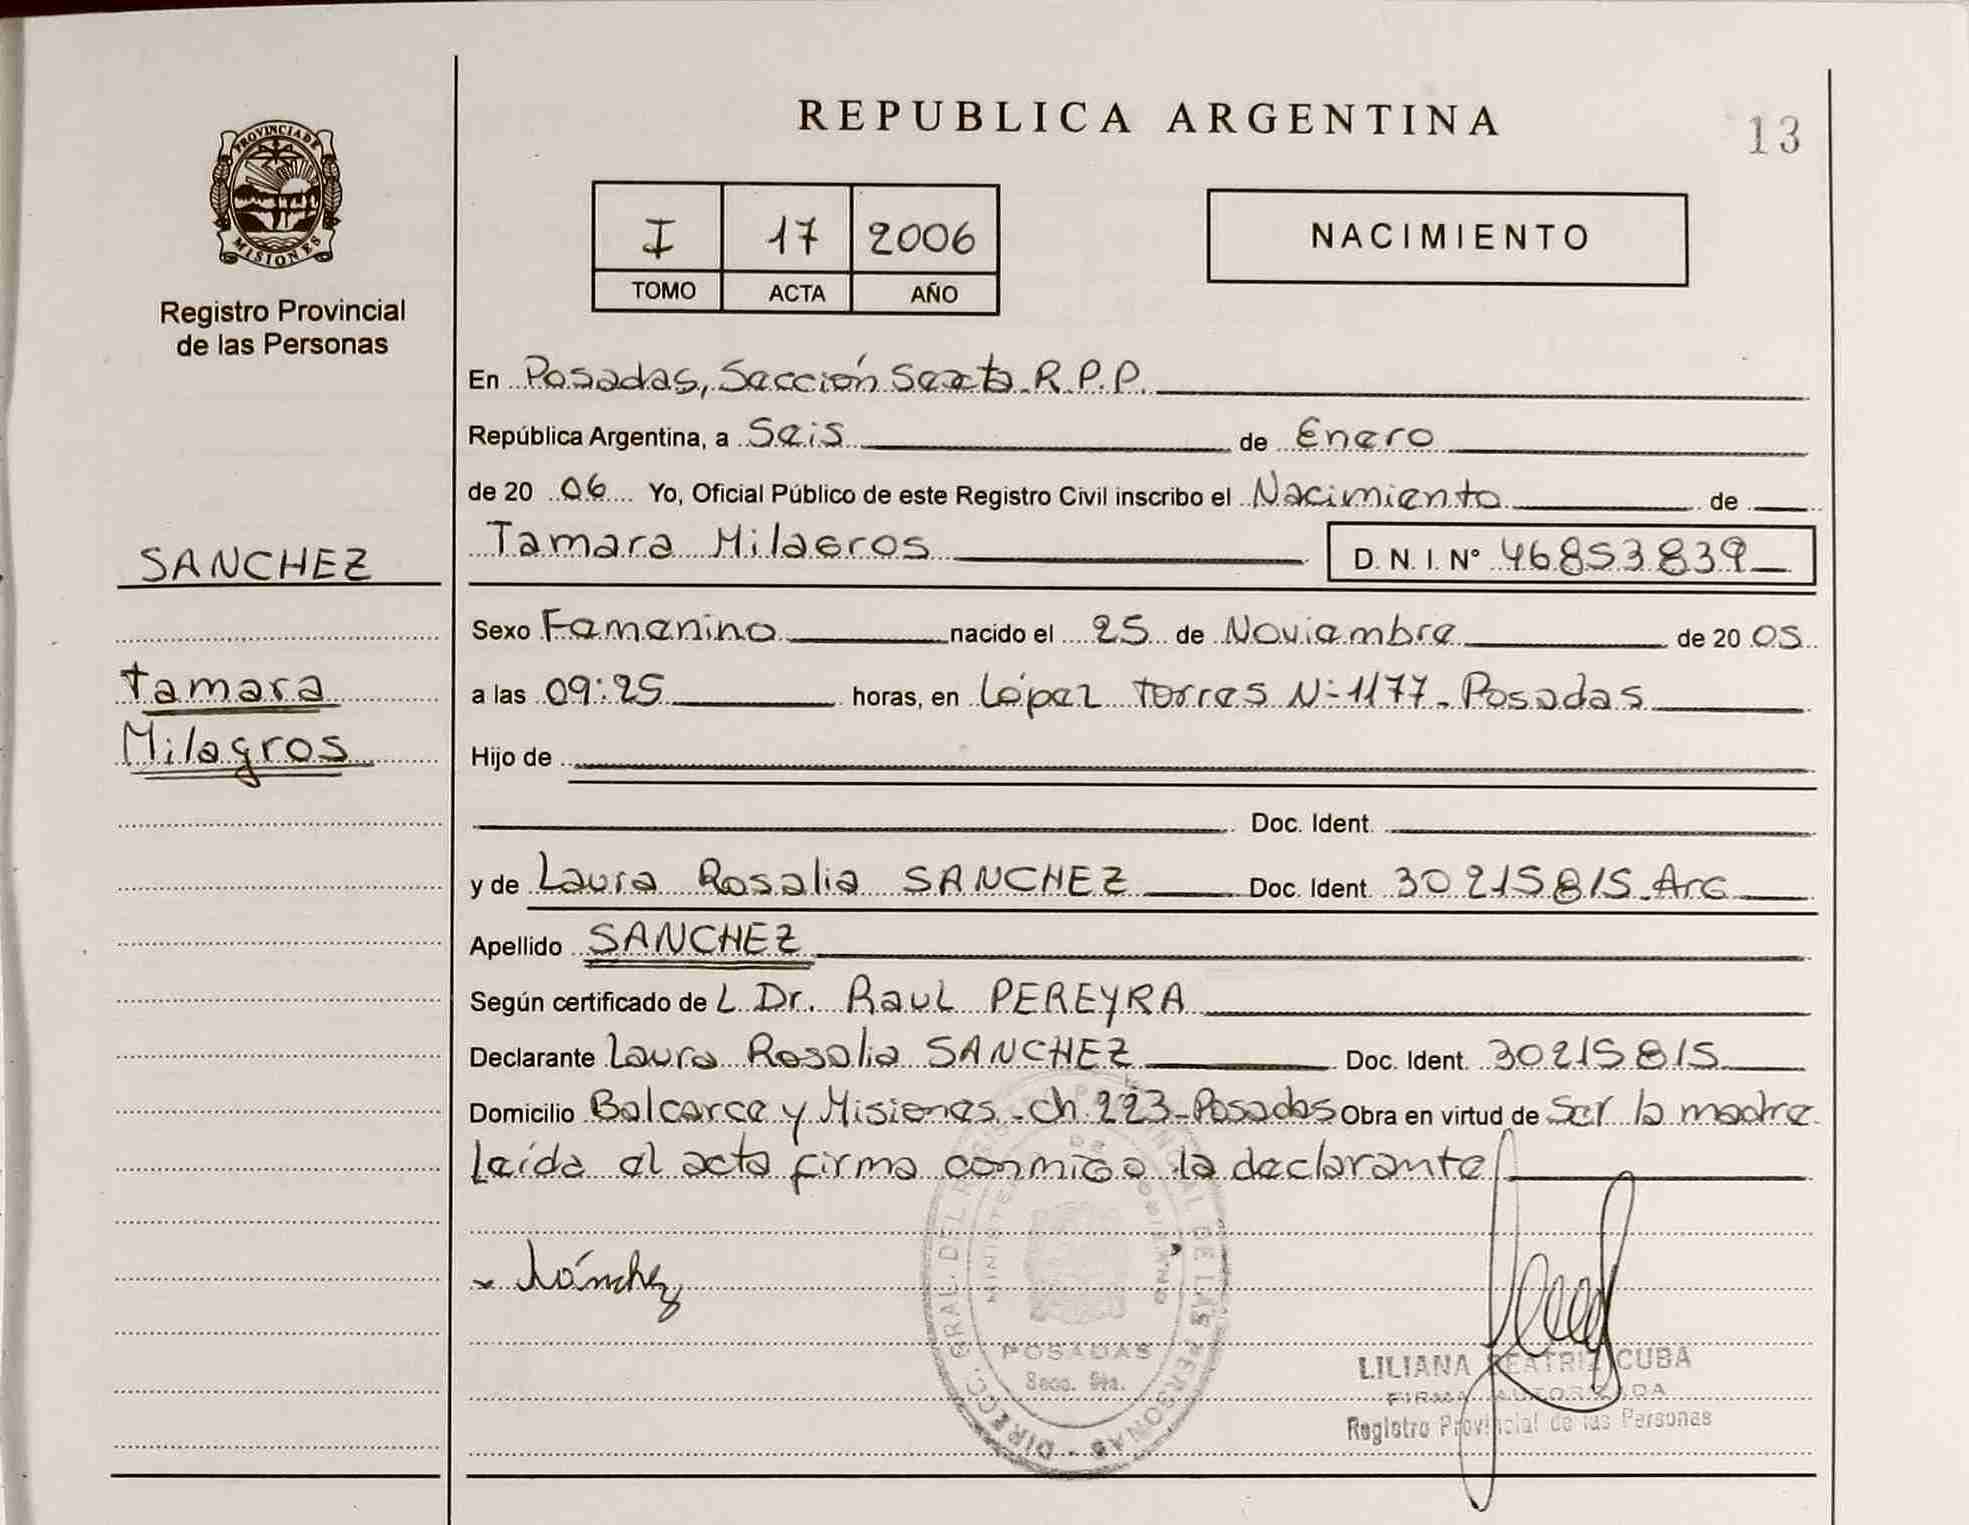 REPUBLICA ARGENTINA
13
PROVINCIA DE
MISIONES
Registro Provincial
de las Personas
I 17 2006
TOMO ACTA AÑO
NACIMIENTO
En Posadas, Sección Sexta R.P.P.
República Argentina, a Seis de Enero
de 20 06 Yo, Oficial Público de este Registro Civil inscribo el Nacimiento de
Tamara Milagros D.N.I. N° 46853839
SANCHEZ
Tamara
Milagros
Sexo Femenino nacido el 25 de Noviembre de 20 05
a las 09:25 horas, en López Torres N=1177- Posadas
Hijo de
Doc. Ident.
y de Laura Rosalia SANCHEZ Doc. Ident. 30215815 Arg
Apellido SANCHEZ
Según certificado de L Dr. Raul PEREYRA
Declarante Laura Rosalia SANCHEZ Doc. Ident. 30215815
Domicilio Balcarce y Misiones - Ch 223-Posadas Obra en virtud de Ser la madre
Leída el acta firma conmigo la declarante
x Sánchez
DIRECC. GRAL. DEL REGISTRO PROVINCIAL DE LAS PERSONAS
MINISTERIO DE GOBIERNO
POSADAS
Secc. 6ta.
LILIANA BEATRIZ CUBA
FIRMA AUTORIZADA
Registro Provincial de las Personas